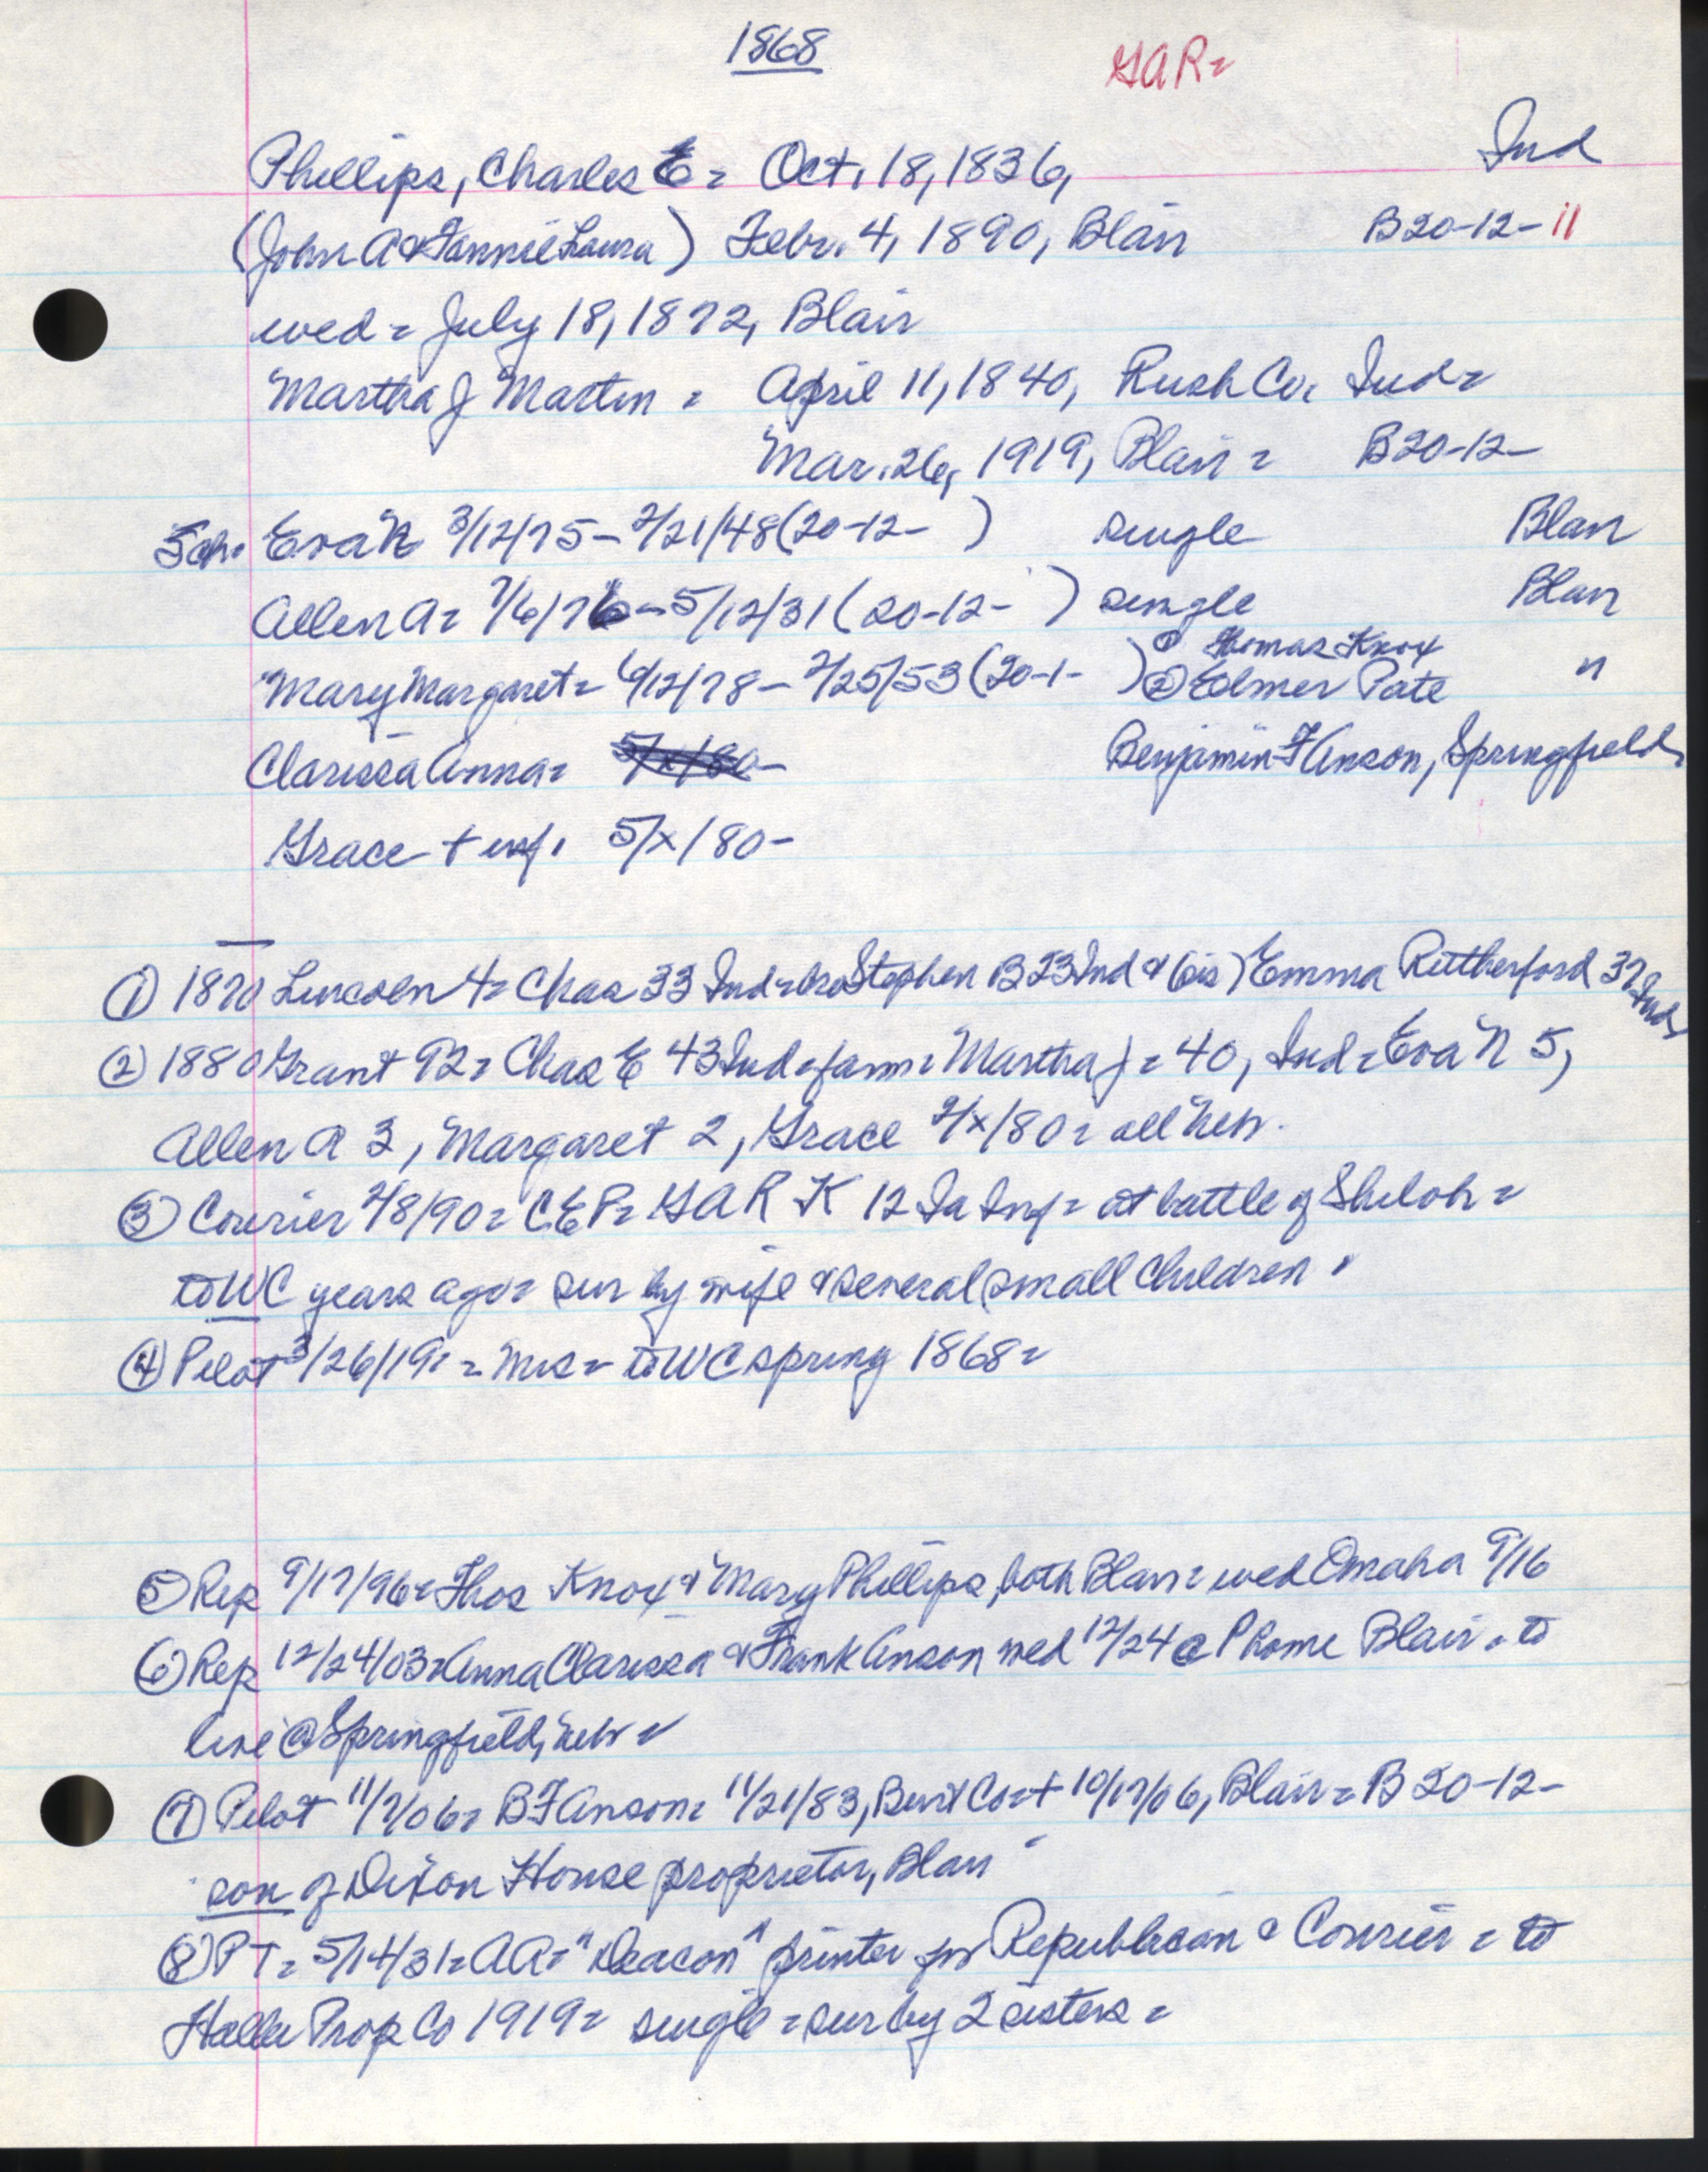 1868
GAR=
Ind
Phillips, Charles E = Oct. 18, 1836,
(John A & Fannie Laura) Febr. 4, 1890, Blair B20-12-11
wed = July 18, 1872, Blair
Martha J Martin = April 11, 1840, Rush Co. Ind =
Mar. 26, 1919, Blair = B20-12-
5ch. Eva N 3/12/75 - 2/21/48 (20-12- ) single Blair
Allen A = 7/6/76 - 5/12/31 (20-12- ) single Blair
Mary Margaret = 6/12/78 - 2/25/53 (20-1- ) ① Thomas Knox
② Elmer Pate "
Clarissa Anna = 5/x/80- Benjamin F Anson, Springfield
Grace + inf. 5/x/80-
① 1870 Lincoln 4 = Chas 33 Ind = bro Stephen B 23 Ind & (sis) Emma Rutherford 37 Ind
② 1880 Grant 92 = Chas E 43 Ind = farm = Martha J = 40, Ind = Eva N 5,
Allen A 3, Margaret 2, Grace 2/x/80 = all Neb.
③ Courier 2/8/90 = C.E.P = GAR K 12 Ia Inf = at battle of Shiloh =
to WC years ago = sur by wife & several small children.
④ Pilot 3/26/19 = Mrs = to WC spring 1868 =
⑤ Rep 9/17/96 = Thos Knox & Mary Phillips, both Blair = wed Omaha 9/16
⑥ Rep 12/24/03 = Anna Clarissa & Frank Anson wed 12/24 @ P home Blair = to
live @ Springfield, Neb =
⑦ Pilot 11/7/06 = B F Anson = 11/21/83, Burt Co = + 10/17/06, Blair = B 20-12-
son of Dixon House proprietor, Blair
⑧ PT = 5/14/31 = AA = "Deacon" printer for Republican & Courier = to
Haller Prop Co 1919 = single = sur by 2 sisters =